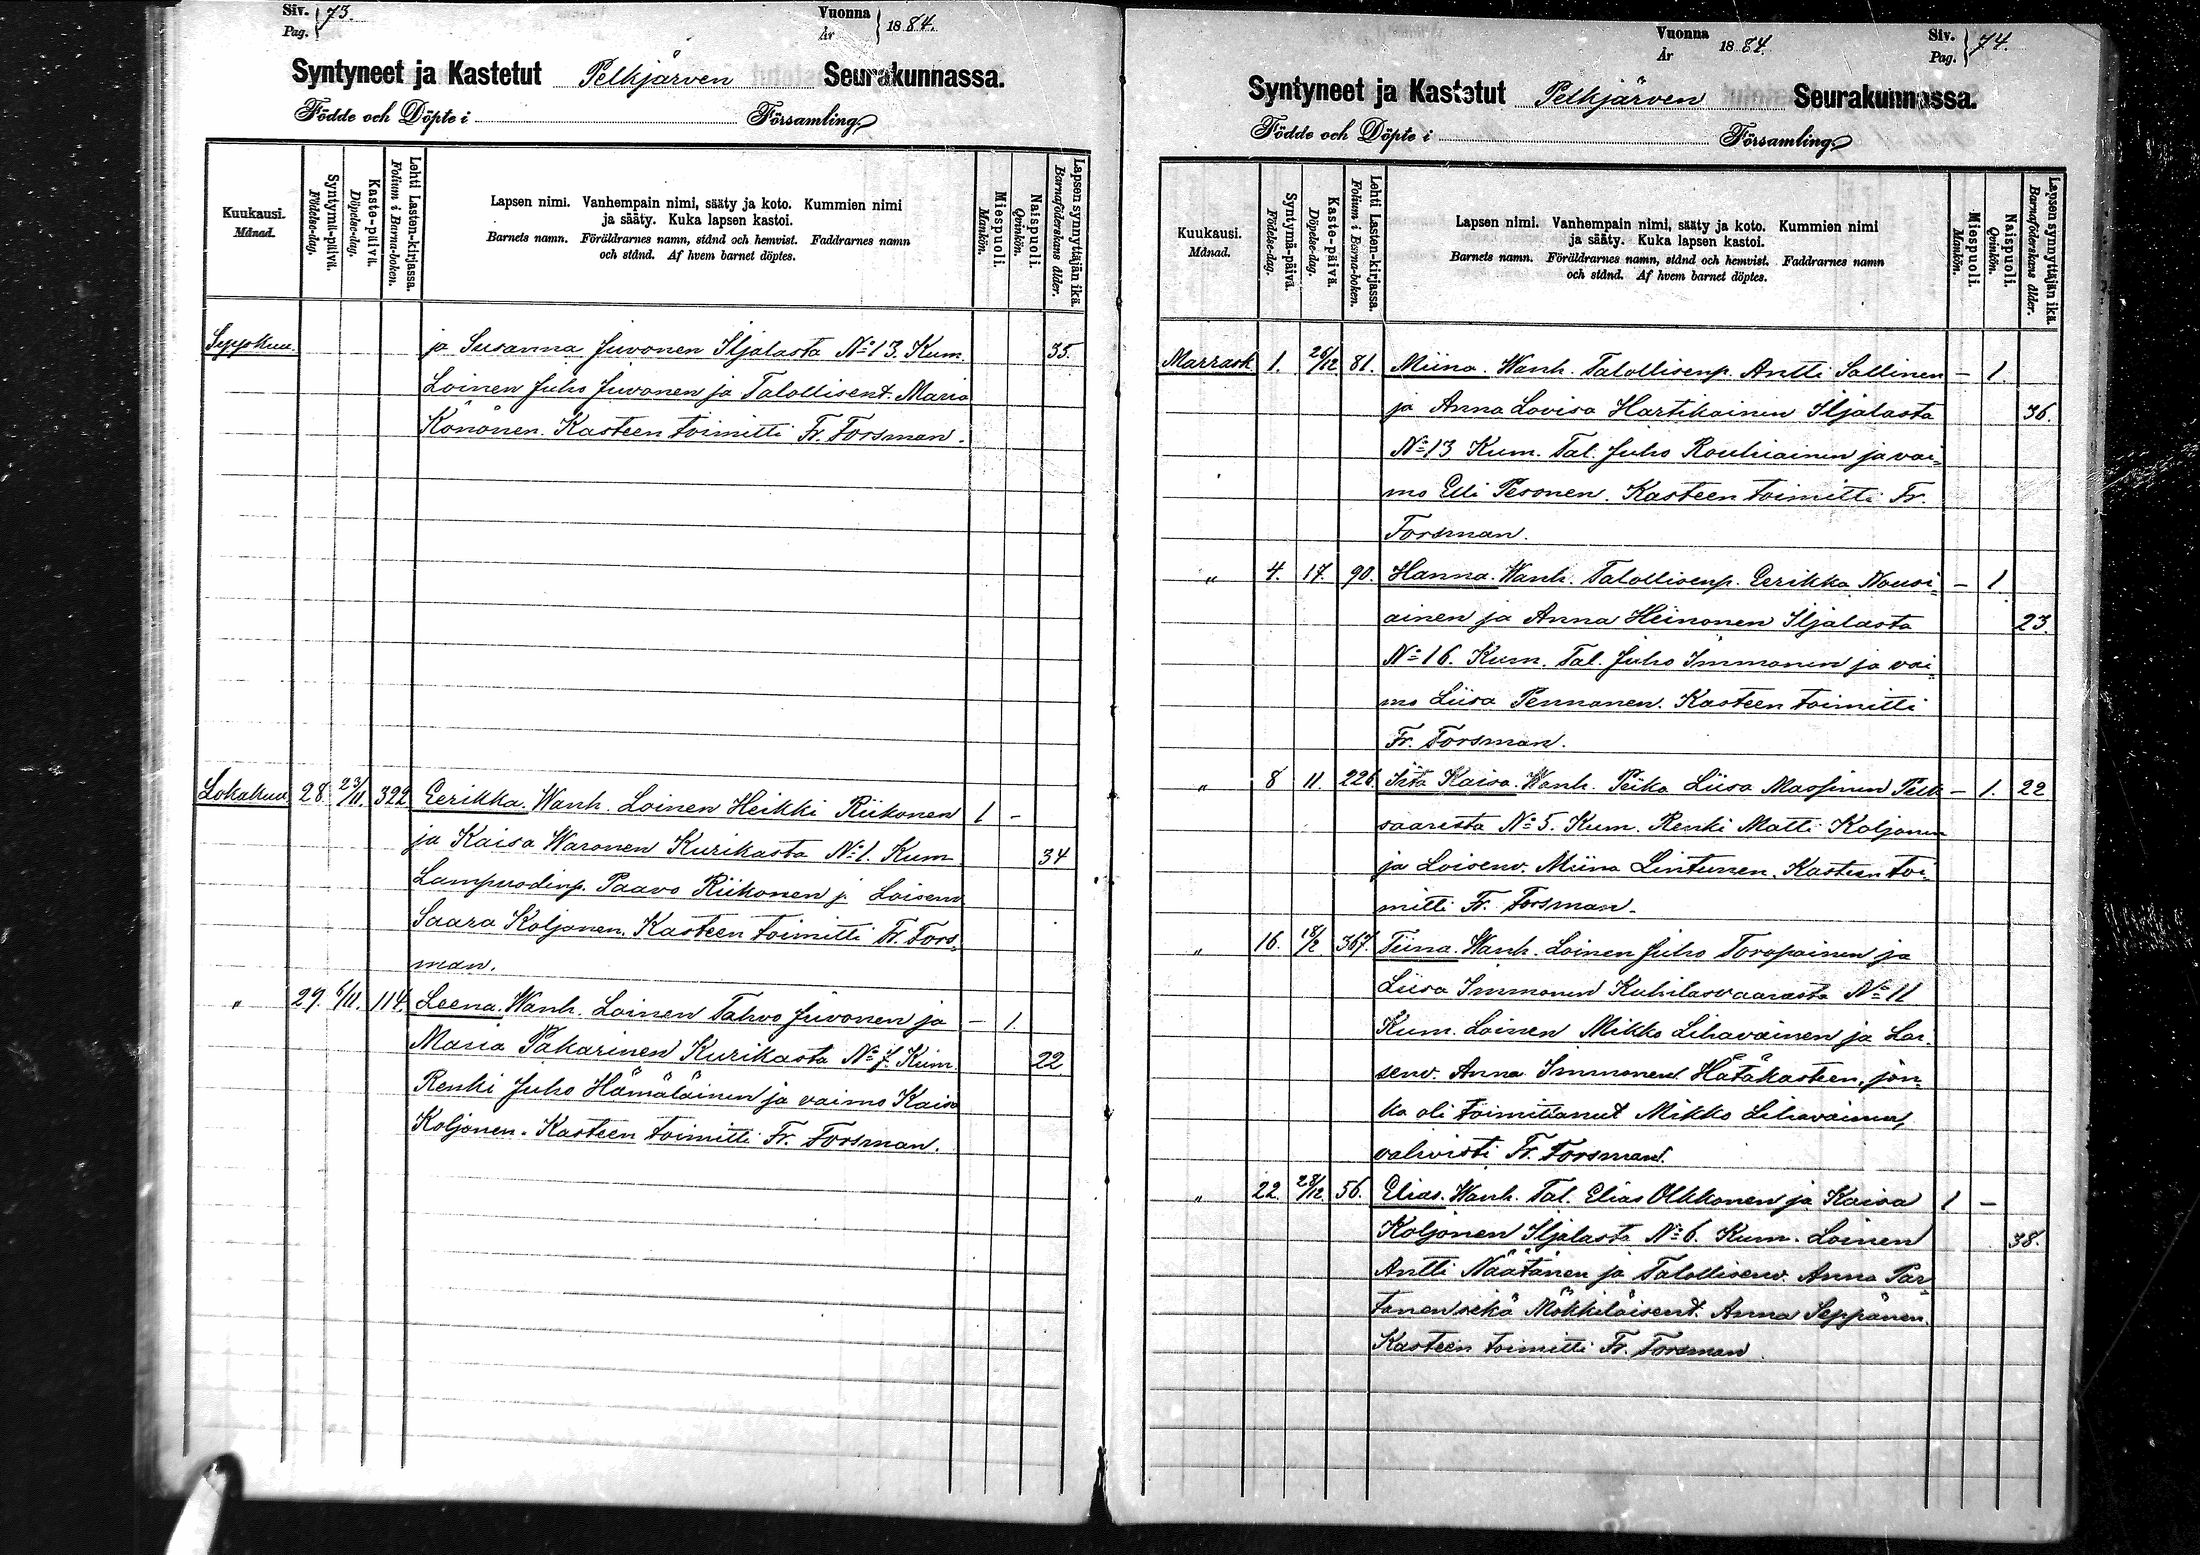 Siv. 73.
Pag.
Vuonna 1884.
År
Syntyneet ja Kastetut Pelkjärven Seurakunnassa.
Födde och Döpte i Församling.
Kuukausi.
Månad.
Syntymä-päivä.
Födelse-dag.
Kaste-päivä.
Döpelse-dag.
Lehti Lasten-kirjassa.
Folium i Barna-boken.
Lapsen nimi. Vanhempain nimi, sääty ja koto. Kummien nimi
ja sääty. Kuka lapsen kastoi.
Barnets namn. Föräldrarnes namn, stånd och hemvist. Faddrarnes namn
och stånd. Af hvem barnet döptes.
Miespuoli.
Mankön.
Naispuoli.
Qvinkön.
Lapsen synnyttäjän ikä.
Barnaföderskans ålder.
Syyskuu. ja Susanna Juvonen Iljalasta No 13. Kum. 35.
Loinen Juho Juvonen ja Talollisent. Maria
Könönen. Kasteen toimitti Fr. Forsman.
Lokakuu 28 23/11. 322 Eerikka. Wanh. Loinen Heikki Riikonen 1 -
ja Kaisa Waronen Kurikasta No 1. Kum 34
Lampuodinp. Paavo Riikonen j. Loisenv
Saara Koljonen. Kasteen toimitti Fr. Fors-
man.
" 29. 6/11. 114. Leena. Wanh. Loinen Tahvo Juvonen ja - 1.
Maria Pakarinen Kurikasta No 7. Kum. 22
Renki Juho Hämäläinen ja vaimo Kaisa
Koljonen. Kasteen toimitti Fr. Forsman.
Vuonna 1884.
År
Siv. 74.
Pag.
Syntyneet ja Kastetut Pelkjärven Seurakunnassa.
Födde och Döpte i Församling.
Kuukausi.
Månad.
Syntymä-päivä.
Födelse-dag.
Kaste-päivä.
Döpelse-dag.
Lehti Lasten-kirjassa.
Folium i Barna-boken.
Lapsen nimi. Vanhempain nimi, sääty ja koto. Kummien nimi
ja sääty. Kuka lapsen kastoi.
Barnets namn. Föräldrarnes namn, stånd och hemvist. Faddrarnes namn
och stånd. Af hvem barnet döptes.
Miespuoli.
Mankön.
Naispuoli.
Qvinkön.
Lapsen synnyttäjän ikä.
Barnaföderskans ålder.
Marrask 1. 26/12. 81. Miina. Wanh. Talollisenp. Antti Sallinen - 1.
ja Anna Lovisa Hartikainen Iljalasta 36.
No 13 Kum. Tal. Juho Rouhiainen ja vai-
mo Elli Pesonen. Kasteen toimitti Fr.
Forsman.
" 4. 17. 90. Hanna. Wanh. Talollisenp. Eerikka Nousi- - 1
ainen ja Anna Heinonen Iljalasta 23.
No 16. Kum. Tal. Juho Immonen ja vai-
mo Liisa Pennanen. Kasteen toimitti
Fr. Forsman.
" 8 11. 226. Iita Kaisa. Wanh. Piika Liisa Massinen - 1. 22
saaresta No 5. Kum. Renki Matti Koljonen
ja Loisenv. Miina Lintunen. Kasteen toi-
mitti Fr. Forsman.
" 16. 18/12 367. Tiina. Wanh. Loinen Juho Toropainen ja
Liisa Immonen Kuhilasvaarasta No 11
Kum. Loinen Mikko Lihavainen ja Loi-
senv. Anna Immonen. Hätäkasteen, jon-
ka oli toimittanut Mikko Lihavainen,
vahvisti Fr. Forsman.
" 22. 28/12. 56. Elias. Wanh. Tal. Elias Olkkonen ja Kaisa 1 -
Koljonen Iljalasta No 6. Kum. Loinen 38.
Antti Näätänen ja Talollisenv. Anna Par-
tanen sekä Mökkiläisent. Anna Seppänen.
Kasteen toimitti Fr. Forsman